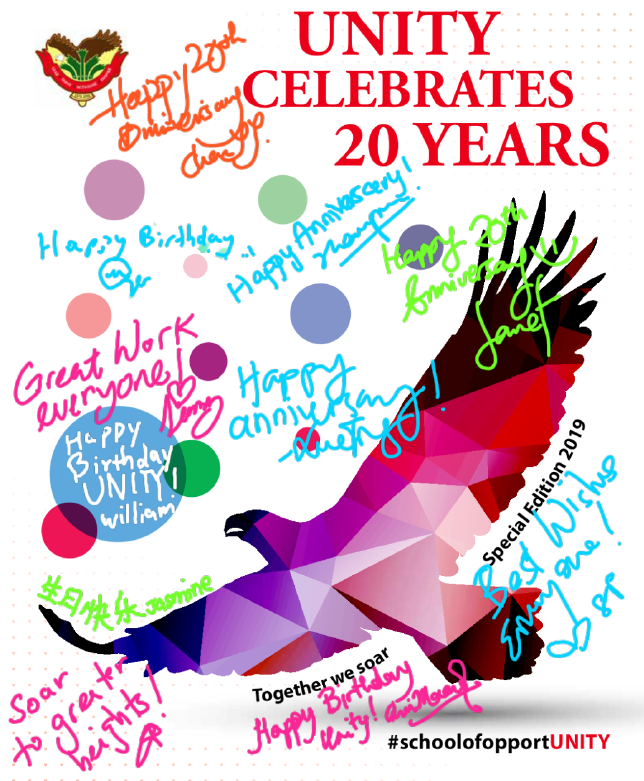 UNITY
CELEBRATES
20 YEARS
Happy 20th
Anniversary
Happy Birthday
Happy Anniversary!
Happy 20th
Anniversary
Janet
Great Work
everyone!
Happy
anniversary!
HAPPY
Birthday
UNITY!
william
Special Edition 2019
Best Wishes
Everyone!
生日快乐 Jasmine
Soar
to greater
heights!
Together we soar
Happy Birthday
Unity!
#schoolofopportUNITY